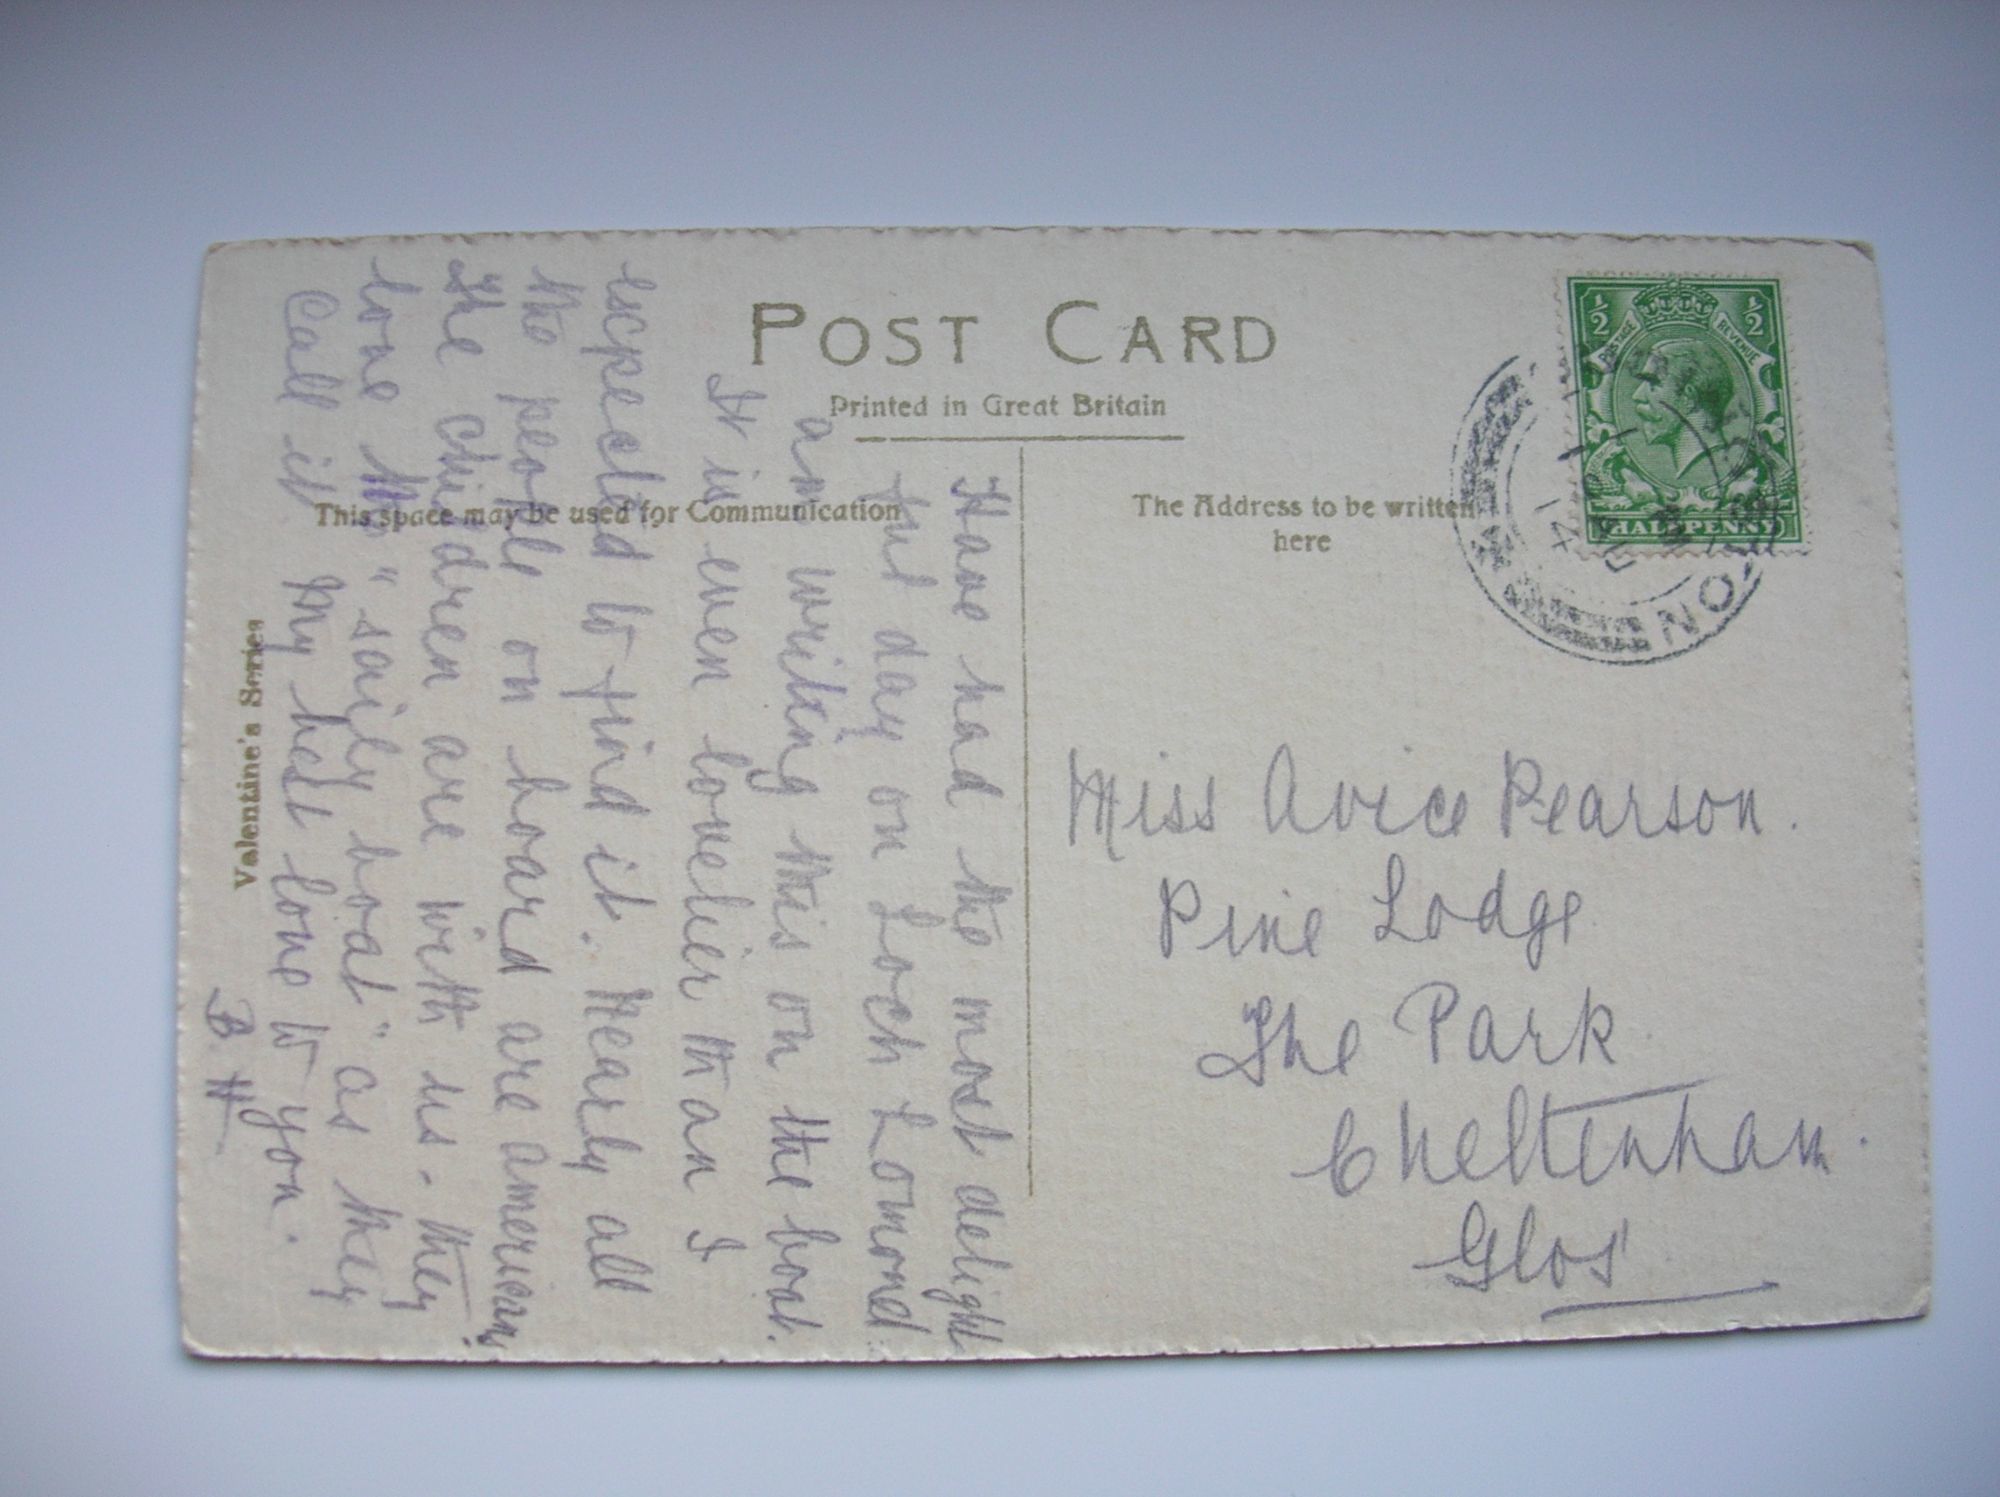 POST CARD
Printed in Great Britain
This space may be used for Communication
The Address to be written
here
Valentine's Series
½ ½
POSTAGE REVENUE
HALFPENNY
14
ON
Have had the most delight
ful day on Loch Lomond.
am writing this on the boat.
It is even lovelier than I
expected to find it. Nearly all
the people on board are americans
The children are with us. They
love the "saily boat" as they
call it. My best love to you.
B. H
Miss Avice Pearson.
Pine Lodge
The Park
Cheltenham.
Glos